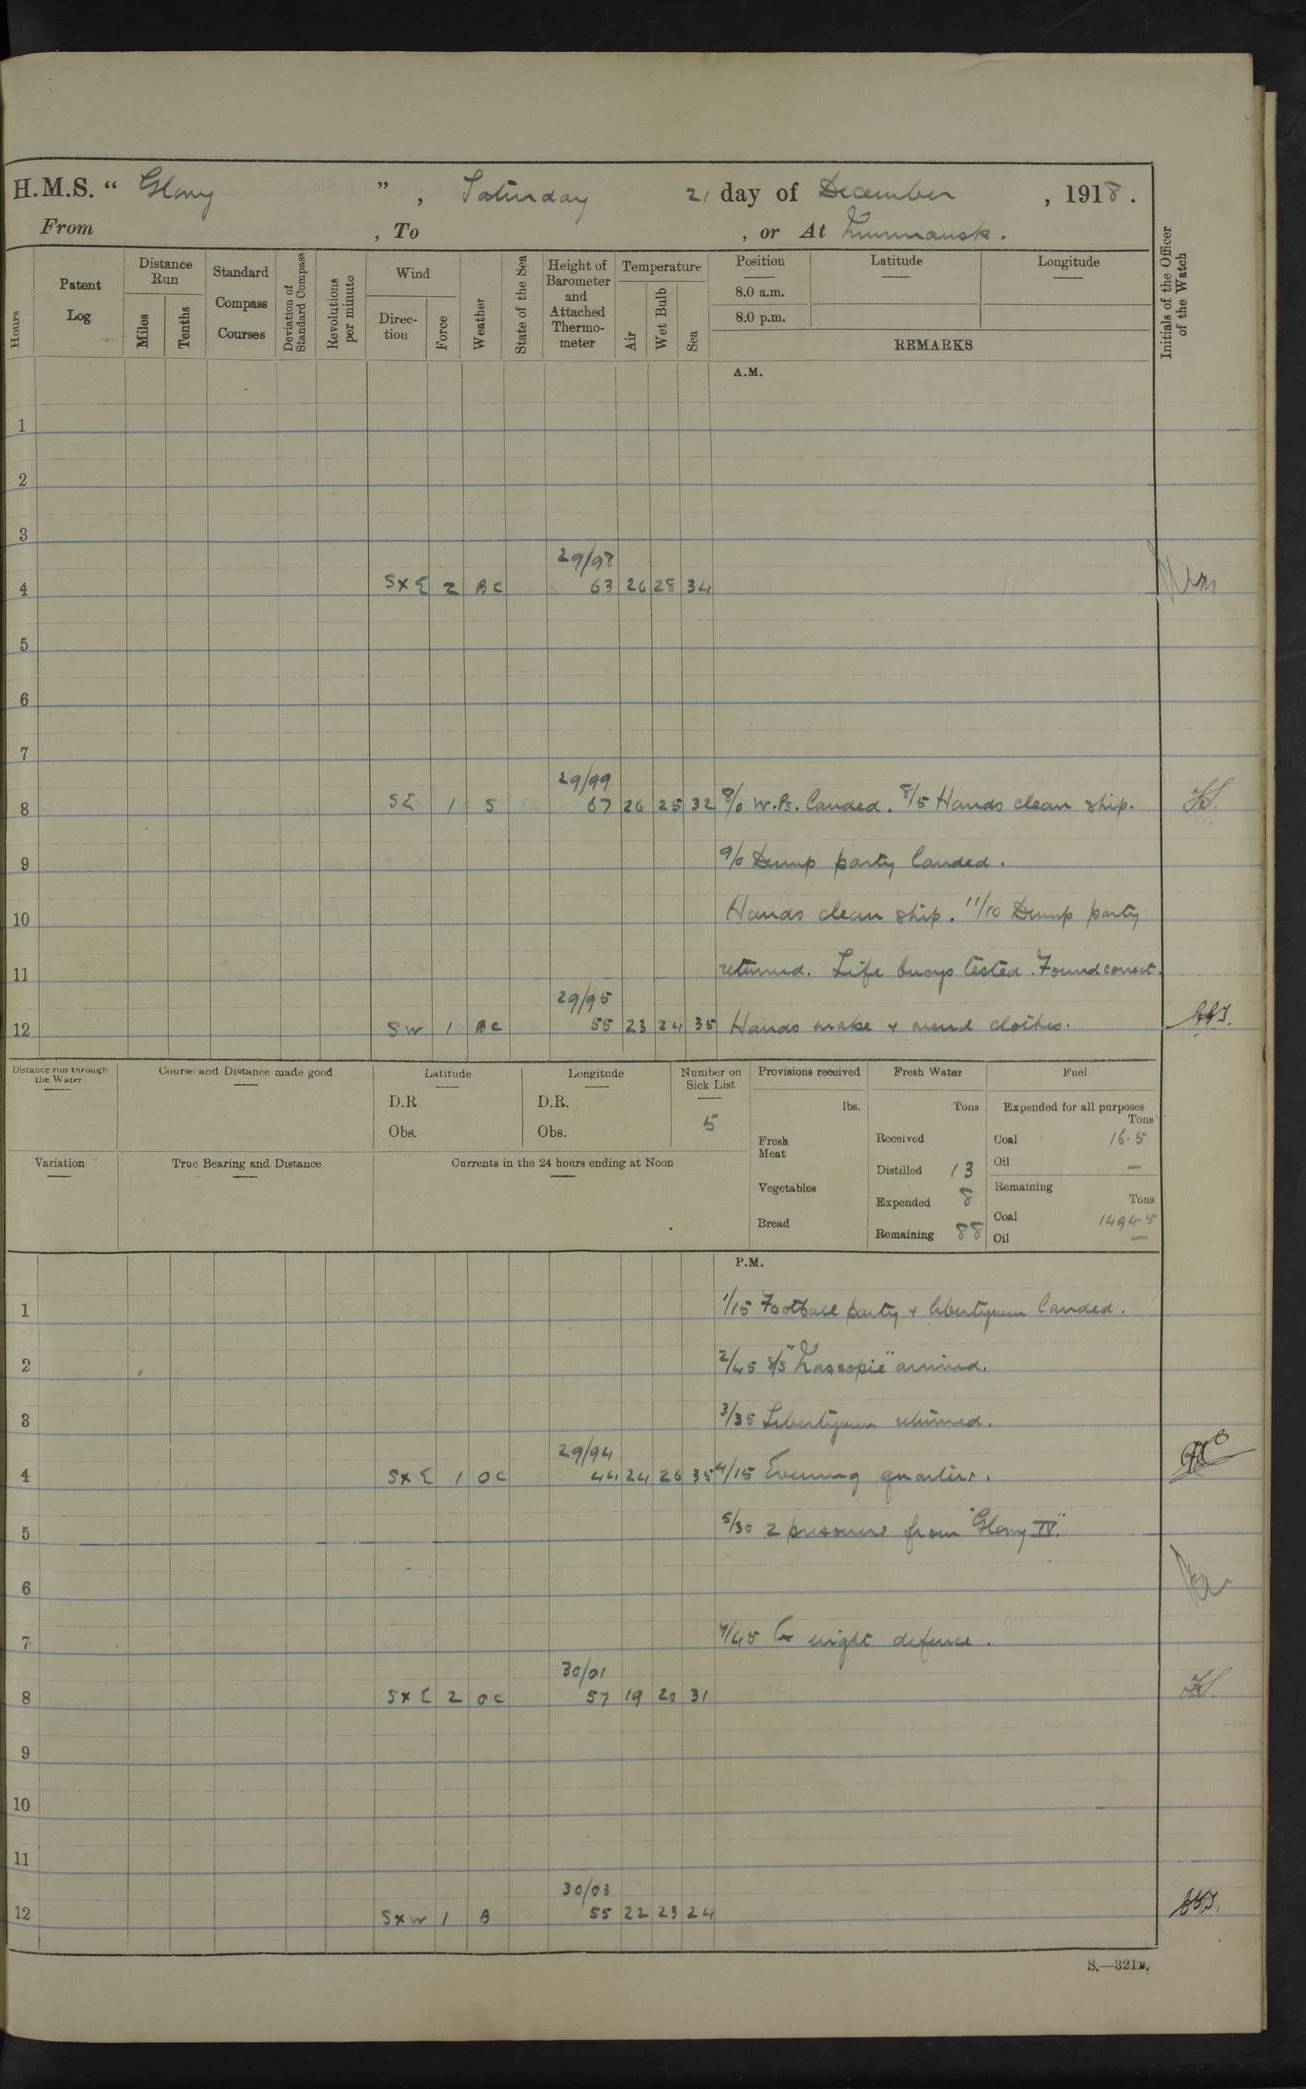 H.M.S. “ Glory ” , Saturday 21 day of December , 1918 .
From , To , or At Murmansk .
Hours
Patent Log
Distance Run
Miles
Tenths
Standard Compass Courses
Deviation of Standard Compass
Revolutions per minute
Wind
Direc-tion
Force
Weather
State of the Sea
Height of Barometer and Attached Thermo-meter
Temperature
Air
Wet Bulb
Sea
Position
Latitude
Longitude
8.0 a.m.
8.0 p.m.
REMARKS
Initials of the Officer of the Watch
A.M.
1
2
3
29/98
4 S x E 2 BC 63 26 28 34
5
6
7
29/99
8 SE 1 S 67 26 25 32 8/0 W.Ps. landed. 8/5 Hands clean ship.
9 9/0 Dump party landed.
10 Hands clean ship. 11/10 Dump party
11 returned. Life buoys tested. Found correct.
29/95
12 SW 1 BC 55 23 24 35 Hands make & mend clothes.
Distance run through the Water
Course and Distance made good
Latitude
Longitude
Number on Sick List
Provisions received
Fresh Water
Fuel
D.R.
D.R.
5
lbs.
Tons
Expended for all purposes
Tons
Obs.
Obs.
Fresh Meat
Received
Coal 16.5
Oil —
Variation
True Bearing and Distance
Currents in the 24 hours ending at Noon
Distilled 13
Vegetables
Expended 8
Remaining
Tons
Bread
Remaining 88
Coal 1494.5
Oil —
P.M.
1 1/15 Football party & libertymen landed.
2 2/45 S/S "Nascopie" arrived.
3 3/35 Libertymen returned.
29/94
4 S x E 1 OC 44 24 26 35 4/15 Evening quarters.
5 5/30 2 prisoners from "Glory IV".
6
7 7/45 Ex night defence.
30/01
8 S x E 2 OC 57 19 20 31
9
10
11
30/03
12 S x W 1 B 55 22 23 24
S.—321B.